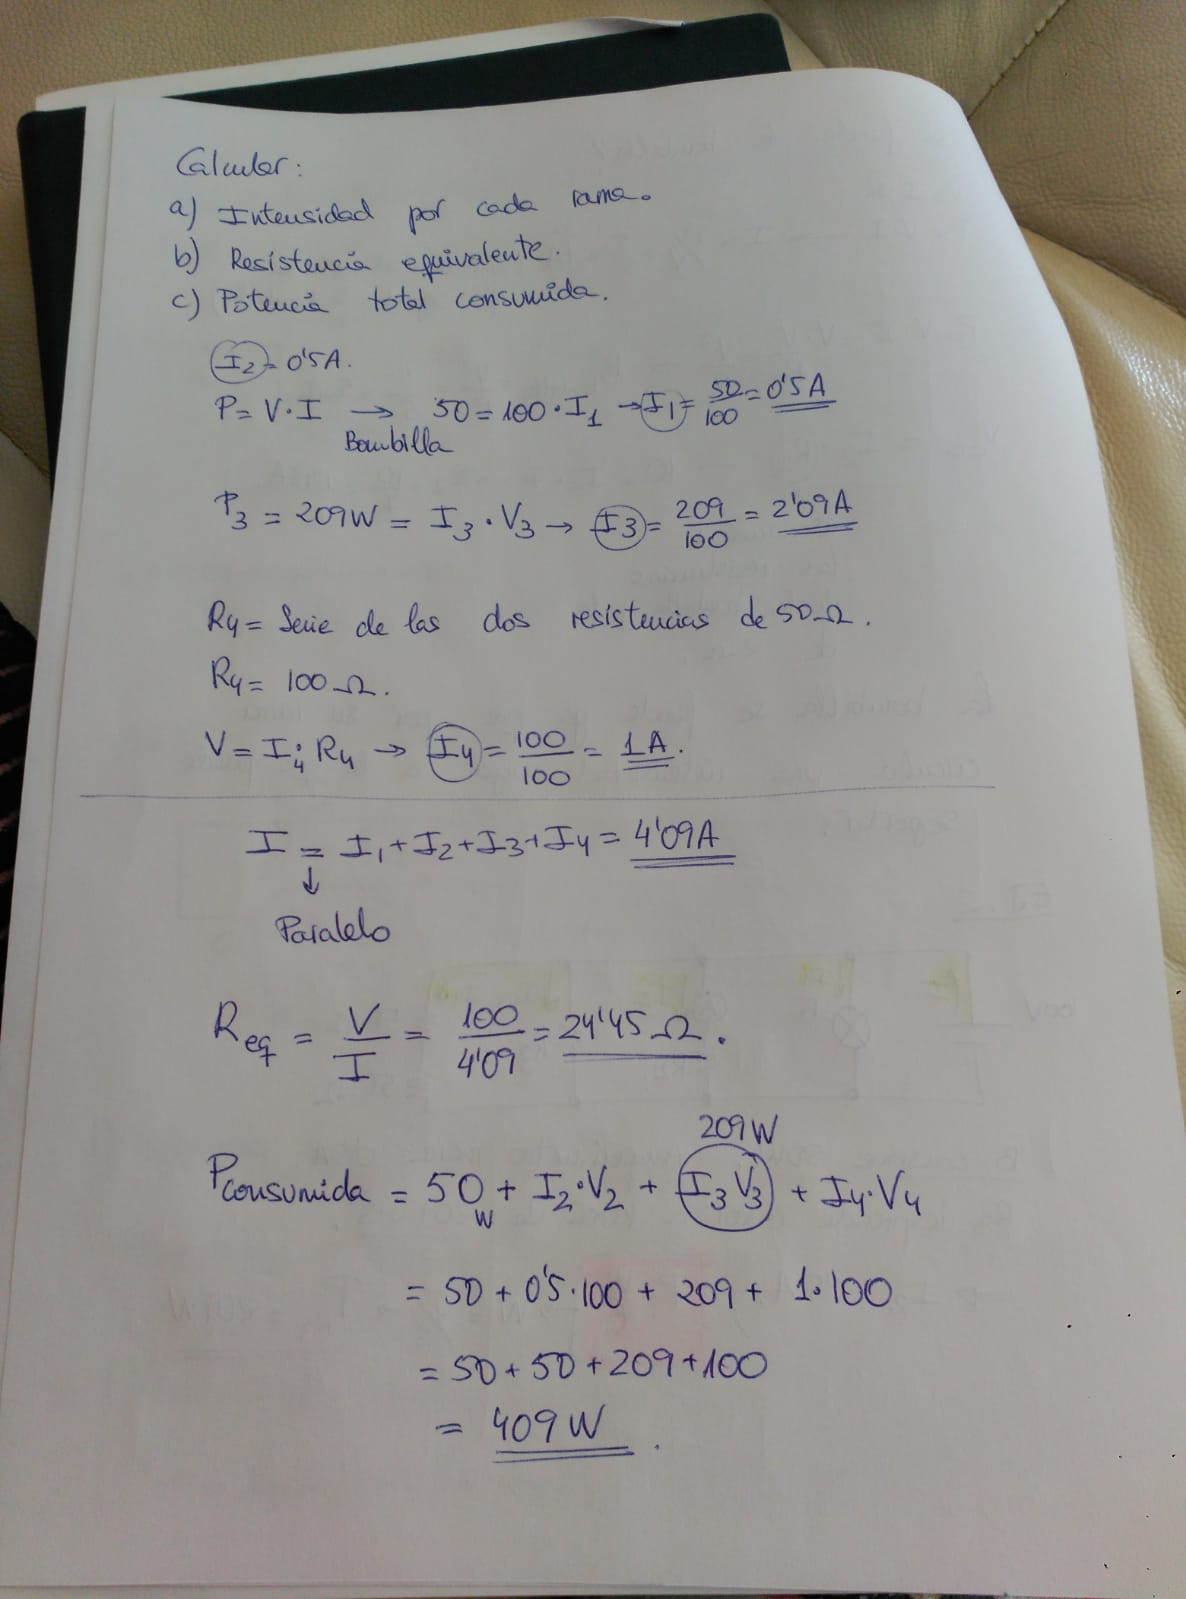 Calcular:
a) Intensidad por cada rama.
b) Resistencia equivalente.
c) Potencia total consumida.
I2 = 0'5A.
P = V·I → 50 = 100·I1 → I1 = 50/100 = 0'5A
Bombilla
P3 = 209W = I3·V3 → I3 = 209/100 = 2'09A
R4 = Serie de las dos resistencias de 50Ω.
R4 = 100Ω.
V = I4·R4 → I4 = 100/100 = 1A.
I = I1+I2+I3+I4 = 4'09A
↓
Paralelo
Req = V/I = 100/4'09 = 24'45Ω.
209W
Pconsumida = 50W + I2·V2 + I3V3 + I4·V4
= 50 + 0'5·100 + 209 + 1·100
= 50+50+209+100
= 409W.